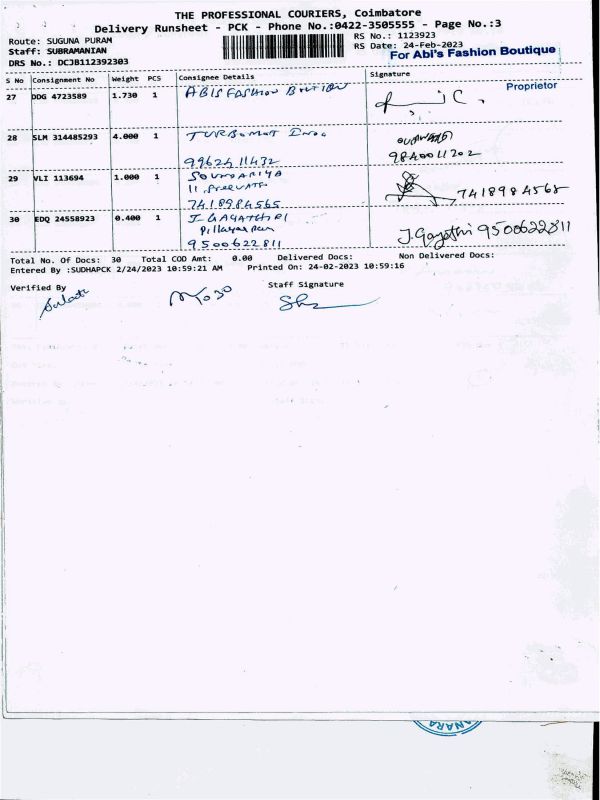 THE PROFESSIONAL COURIERS, Coimbatore
Delivery Runsheet - PCK - Phone No.:0422-3505555 - Page No.:3
Route: SUGUNA PURAM
RS No.: 1123923
Staff: SUBRAMANIAN
RS Date: 24-Feb-2023
DRS No.: DCJB112392303
For Abi's Fashion Boutique
S No Consignment No Weight PCS Consignee Details Signature
Proprietor
27 DDG 4723589 1.730 1 ABIS FASHION
28 SLM 314485293 4.000 1
9962411432 9840011202
29 VLI 113694 1.000 1 SOUNDARIYA
7418984565 7418984565
30 EDQ 24558923 0.400 1 J-GAYATHIRI
9500622811 J.Gayathri 9500622811
Total No. Of Docs: 30 Total COD Amt: 0.00 Delivered Docs: Non Delivered Docs:
Entered By :SUDHAPCK 2/24/2023 10:59:21 AM Printed On: 24-02-2023 10:59:16
Verified By Staff Signature
ANARA